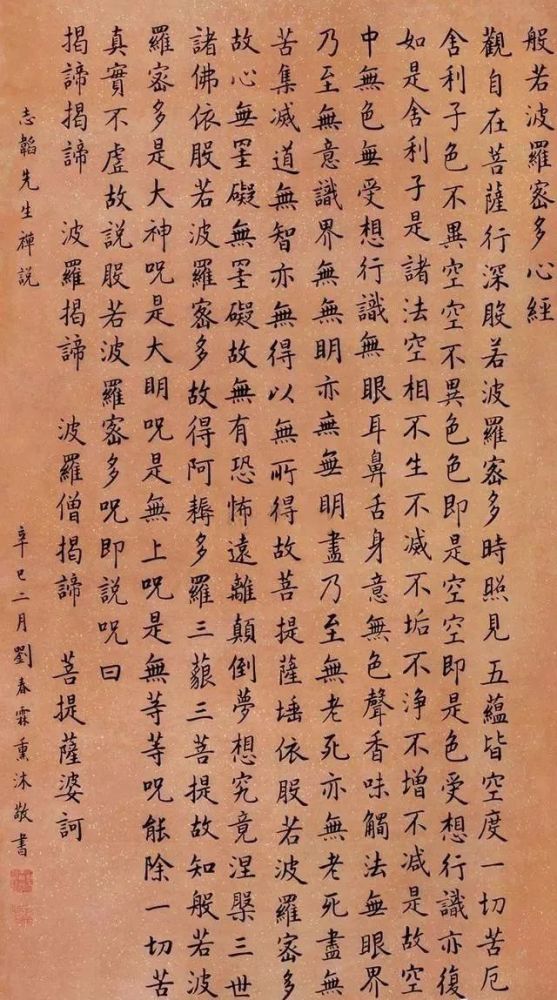 般若波羅密多心經
觀自在菩薩行深般若波羅密多時照見五蘊皆空度一切苦厄
舍利子色不異空空不異色色即是空空即是色受想行識亦復
如是舍利子是諸法空相不生不滅不垢不淨不增不減是故空
中無色無受想行識無眼耳鼻舌身意無色聲香味觸法無眼界
乃至無意識界無無明亦無無明盡乃至無老死亦無老死盡無
苦集滅道無智亦無得以無所得故菩提薩埵依般若波羅密多
故心無罣礙無罣礙故無有恐怖遠離顛倒夢想究竟涅槃三世
諸佛依般若波羅密多故得阿耨多羅三藐三菩提故知般若波
羅密多是大神咒是大明咒是無上咒是無等等咒能除一切苦
真實不虛故說般若波羅密多咒即說咒曰
揭諦揭諦 波羅揭諦 波羅僧揭諦 菩提薩婆訶
志韜先生禪説
辛巳二月劉春霖熏沐敬書